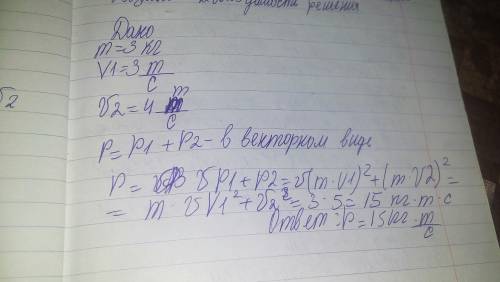 решения
Дано
m=3 кг
V1=3 m/c
V2=4 m/c
P=P1+P2-в векторном виде
P= √P1+P2=√(m·V1)²+(m·V2)²=
= m·√V1²+V2²=3·5=15 кг·m·c
Ответ:P=15кг·m/c